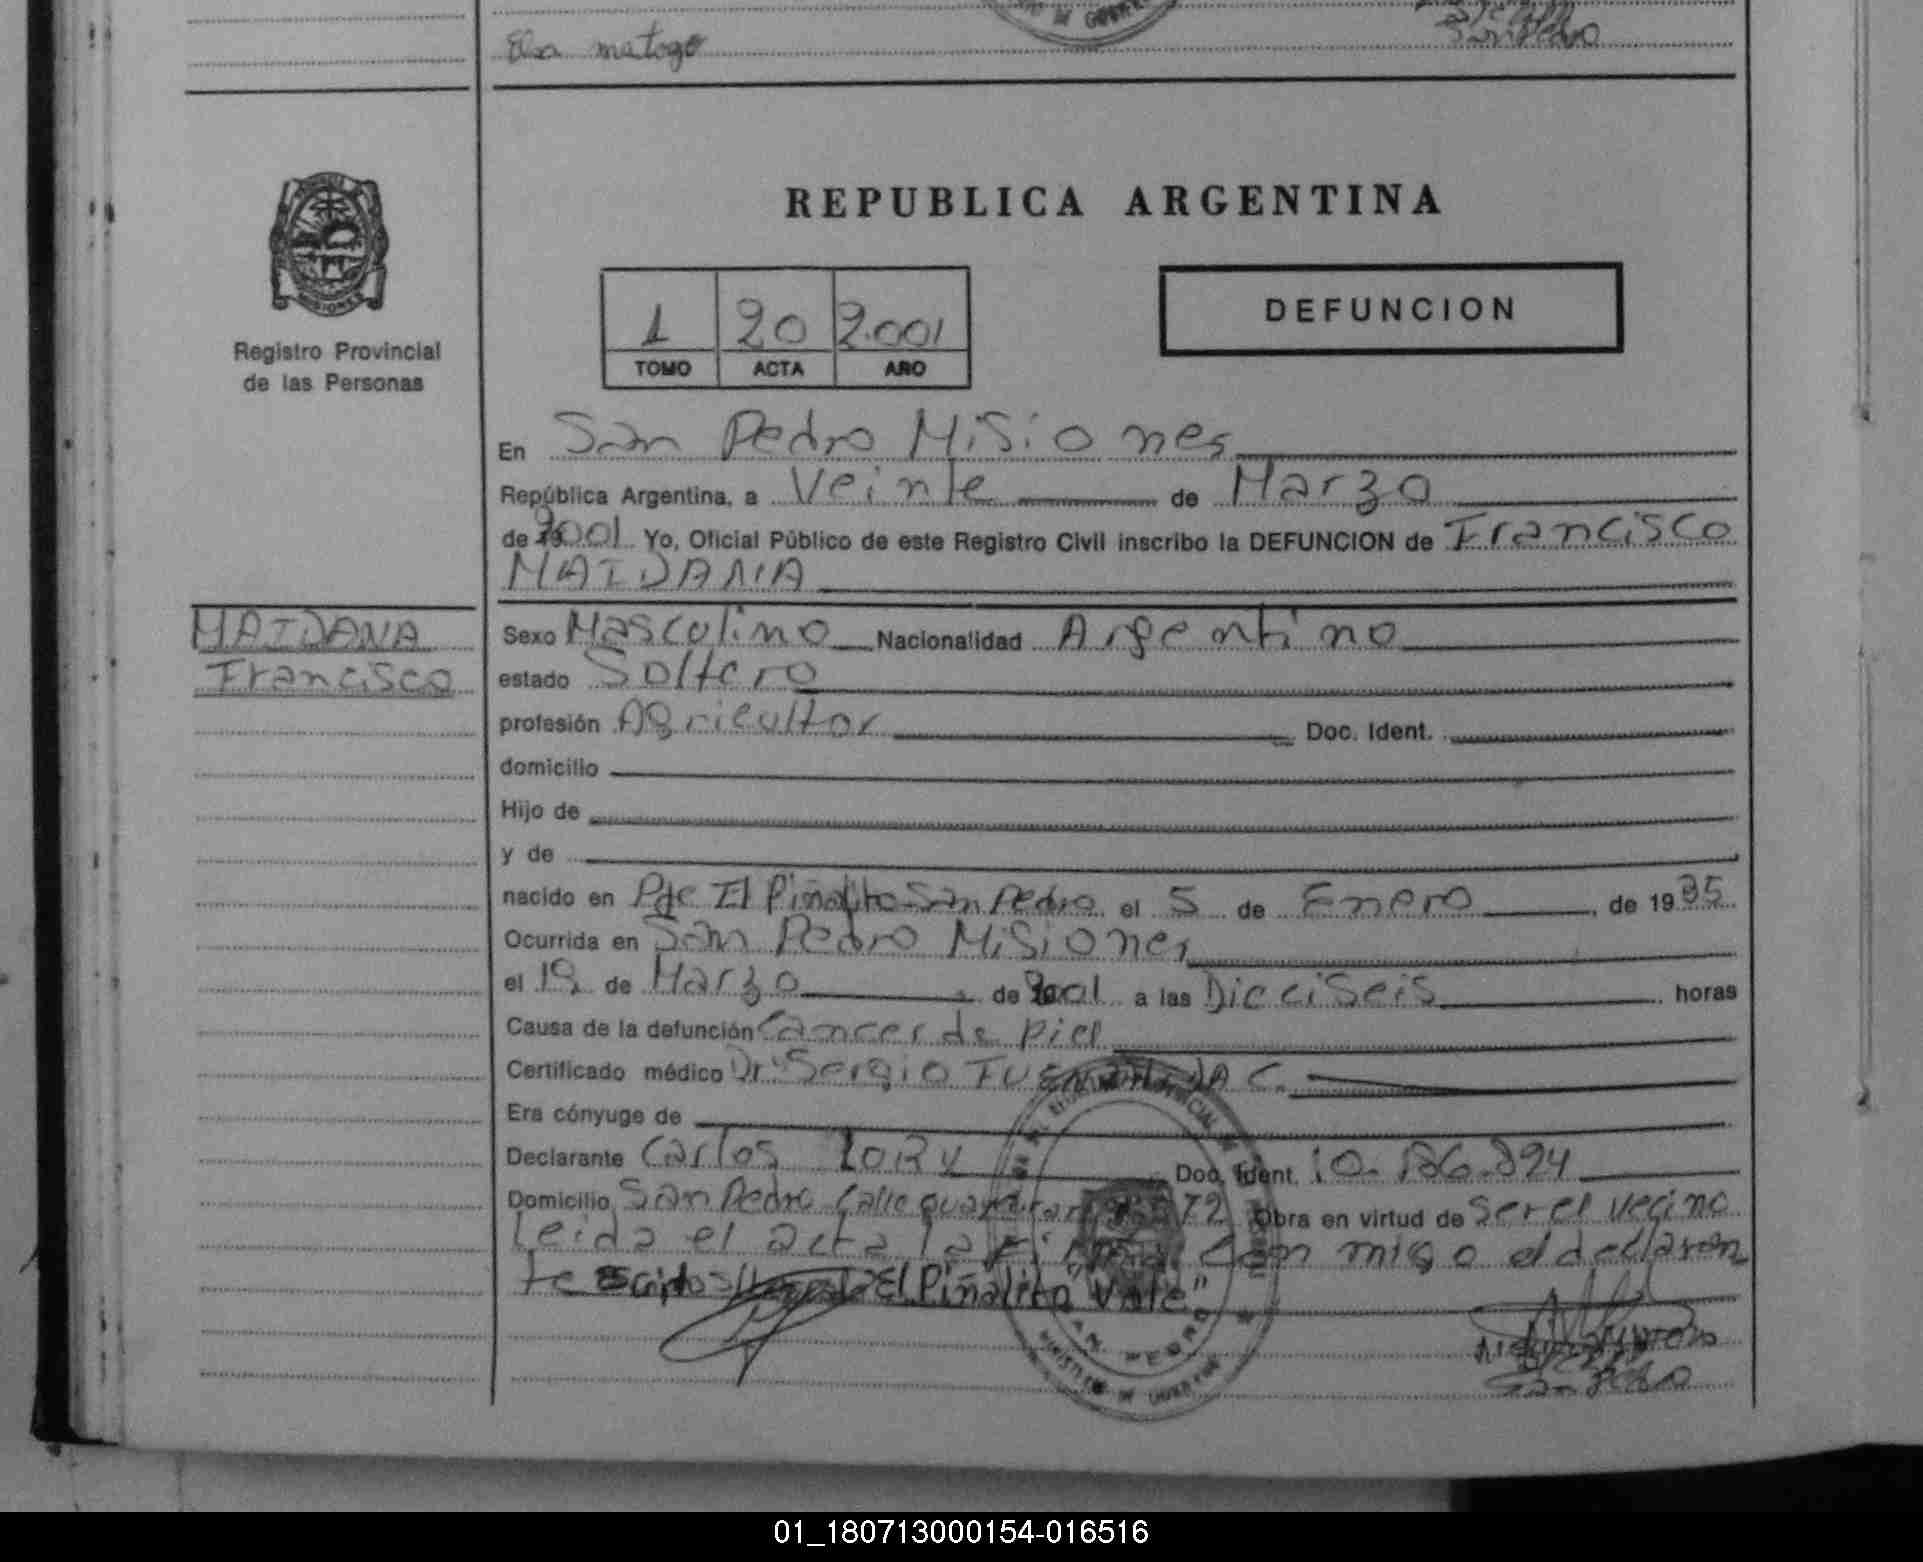 Elsa matogo
San Pedro
REPUBLICA ARGENTINA
MISIONES
Registro Provincial
de las Personas
1 20 2.001
TOMO ACTA AÑO
DEFUNCION
En San Pedro Misiones
República Argentina, a Veinte de Marzo
de 2001 Yo, Oficial Público de este Registro Civil inscribo la DEFUNCION de Francisco
MAIDANA
MAIDANA
Francisco
Sexo Masculino Nacionalidad Argentino
estado Soltero
profesión Agricultor Doc. Ident.
domicilio
Hijo de
y de
nacido en Pje El Piñalito San Pedro el 5 de Enero de 1935
Ocurrida en San Pedro Misiones
el 19 de Marzo de 2001 a las Dieciseis horas
Causa de la defunción Cancer de piel
Certificado médico Dr. Sergio
Era cónyuge de
Declarante Carlos Doc. Ident. 10.186.894
Domicilio San Pedro Calle 72 Obra en virtud de ser el vecino
Leida el acta la firma con migo el declaran
te El Piñalito "Vale"
SAN PEDRO
San Pedro
01_180713000154-016516